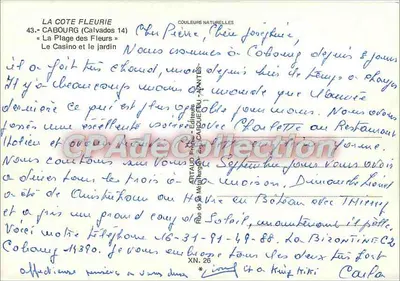 LA COTE FLEURIE
43.- CABOURG (Calvados 14)
« La Plage des Fleurs »
Le Casino et le jardin
COULEURS NATURELLES
Cher Pierre, Chère Josephine,
Nous sommes à Cabourg depuis 8 jours
il a fait très chaud, mais depuis hier le temps a changé
Il y a beaucoup moins de monde que l'année
dernière ce qui est plus agréable pour nous. Nous avons
passés une excellente soirée avec Charlette au Restaurant
Italien et
Nous comptons sur vous en Septembre pour vous avoir
a diner tous les trois a la maison. Dimanche
a été de Ouistreham au Havre en Bateau avec Thierry
et a pris un grand coup de Soleil, maintenant il pèle,
Voici notre téléphone 16-31-91-49-88. LA BIZONTINE C2
Cabourg 14390. Je vous embrasse tous les deux très fort
affectueuses pensées a vous deux Kiki Carla
ARTAUD Père Editeurs
CARQUEFOU - NANTES
XN. 26
CPArdeCollection